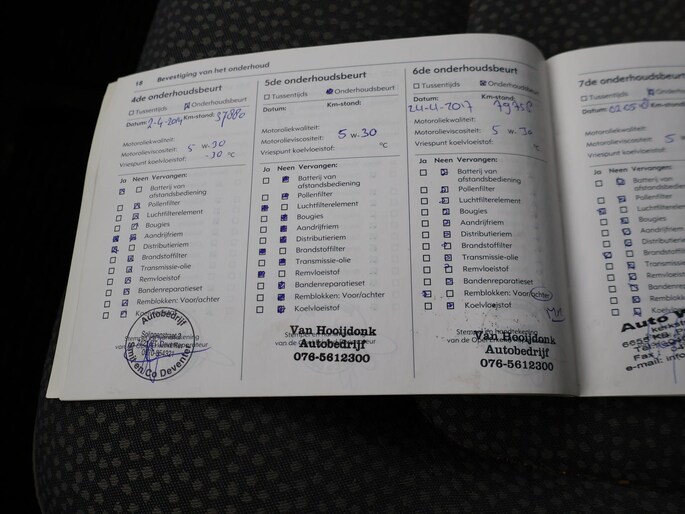 18 Bevestiging van het onderhoud
4de onderhoudsbeurt
Tussentijds Onderhoudsbeurt
Datum: 2-4-2014 Km-stand: 37880
Motoroliekwaliteit:
Motorolieviscositeit: 5 W-30
Vriespunt koelvloeistof: -30 °C
Ja Neen Vervangen:
Batterij van
afstandsbediening
Pollenfilter
Luchtfilterelement
Bougies
Aandrijfriem
Distributieriem
Brandstoffilter
Transmissie-olie
Remvloeistof
Bandenreparatieset
Remblokken: Voor/achter
Koelvloeistof
Autobedrijf
5de onderhoudsbeurt
Tussentijds Onderhoudsbeurt
Datum: Km-stand:
Motoroliekwaliteit:
Motorolieviscositeit: 5 W-30
Vriespunt koelvloeistof: °C
Ja Neen Vervangen:
Batterij van
afstandsbediening
Pollenfilter
Luchtfilterelement
Bougies
Aandrijfriem
Distributieriem
Brandstoffilter
Transmissie-olie
Remvloeistof
Bandenreparatieset
Remblokken: Voor/achter
Koelvloeistof
Van Hooijdonk
Autobedrijf
076-5612300
6de onderhoudsbeurt
Tussentijds Onderhoudsbeurt
Datum: Km-stand:
Motoroliekwaliteit:
Motorolieviscositeit: 5 W-30
Vriespunt koelvloeistof: °C
Ja Neen Vervangen:
Batterij van
afstandsbediening
Pollenfilter
Luchtfilterelement
Bougies
Aandrijfriem
Distributieriem
Brandstoffilter
Transmissie-olie
Remvloeistof
Bandenreparatieset
Remblokken: Voor/achter
Koelvloeistof
Van Hooijdonk
Autobedrijf
076-5612300
7de onderhoudsbeurt
Tussentijds
Datum:
Motoroliekwaliteit:
Motorolieviscositeit: 5
Vriespunt koelvloeistof:
Ja Neen Vervangen:
Batterij van
afstandsbediening
Pollenfilter
Luchtfilterelement
Bougies
Aandrijfriem
Distributieriem
Brandstoffilter
Transmissie-olie
Remvloeistof
Bandenreparatieset
Remblokken:
Koelvloeistof
Auto